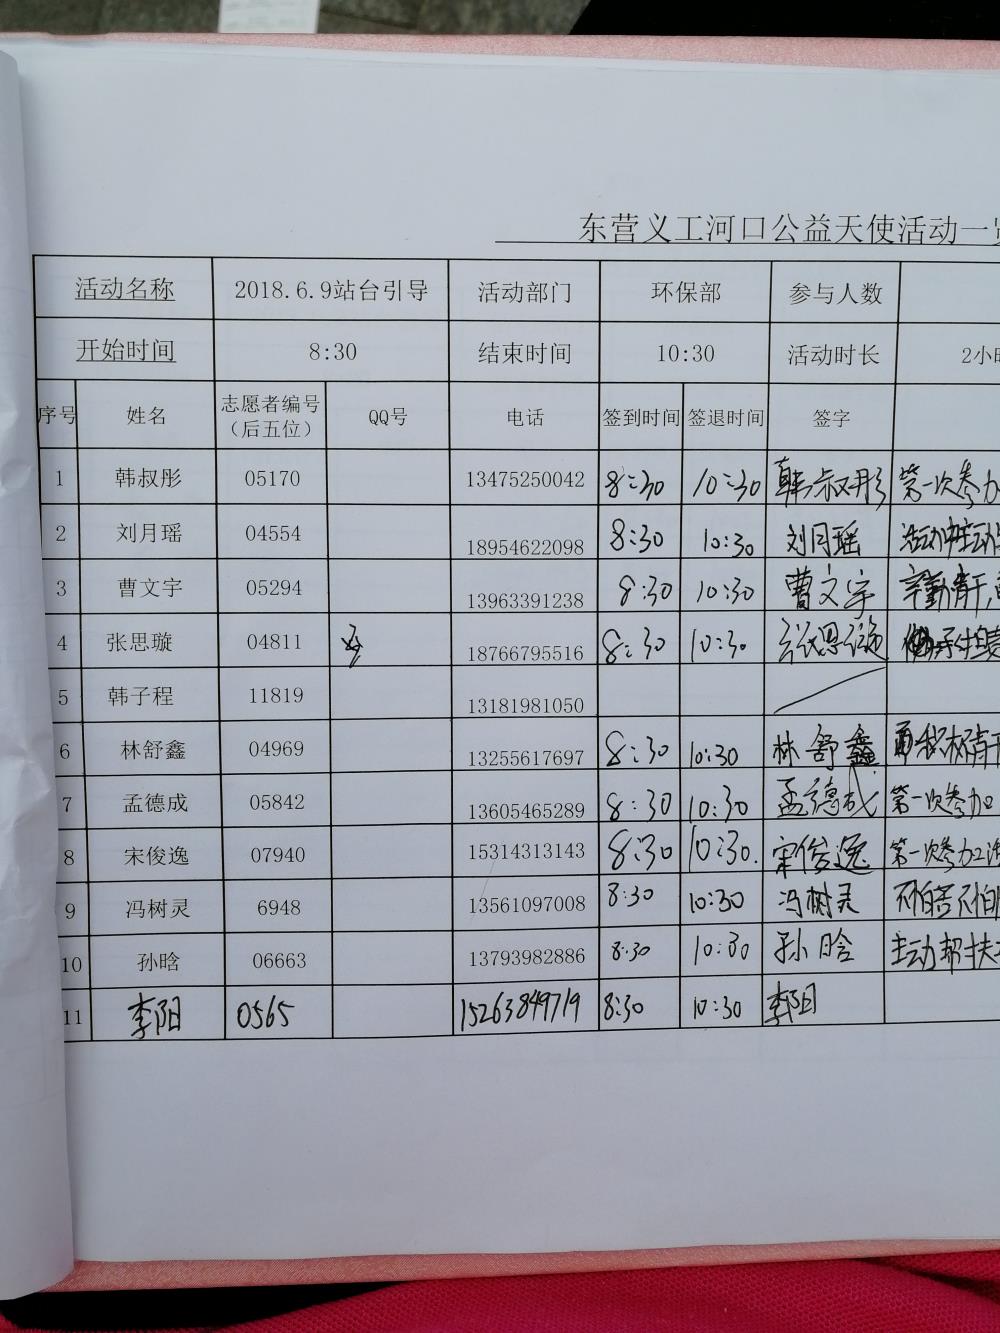 东营义工河口公益天使活动一
活动名称 2018.6.9站台引导 活动部门 环保部 参与人数
开始时间 8:30 结束时间 10:30 活动时长 2小
序号 姓名 志愿者编号（后五位） QQ号 电话 签到时间 签退时间 签字
1 韩叔彤 05170 13475250042 8:30 10:30 韩叔彤 第一次参加
2 刘月瑶 04554 18954622098 8:30 10:30 刘月瑶 活动中主动
3 曹文宇 05294 13963391238 8:30 10:30 曹文宇
4 张思璇 04811 18766795516 8:30 10:30 张思璇
5 韩子程 11819 13181981050
6 林舒鑫 04969 13255617697 8:30 10:30 林舒鑫
7 孟德成 05842 13605465289 8:30 10:30 孟德成 第一次参加
8 宋俊逸 07940 15314313143 8:30 10:30. 宋俊逸 第一次参加
9 冯树灵 6948 13561097008 8:30 10:30 冯树灵 不怕苦不怕
10 孙晗 06663 13793982886 8:30 10:30 孙晗 主动帮扶
11 李阳 0565 15263849719 8:30 10:30 李阳